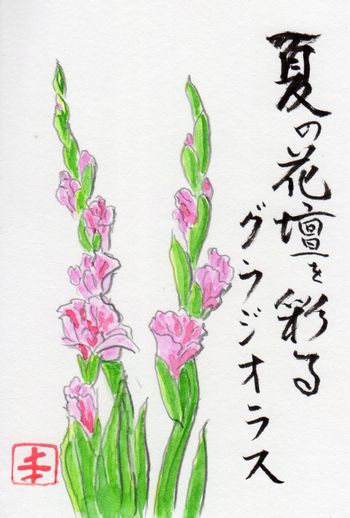 夏の花壇を彩る
グラジオラス